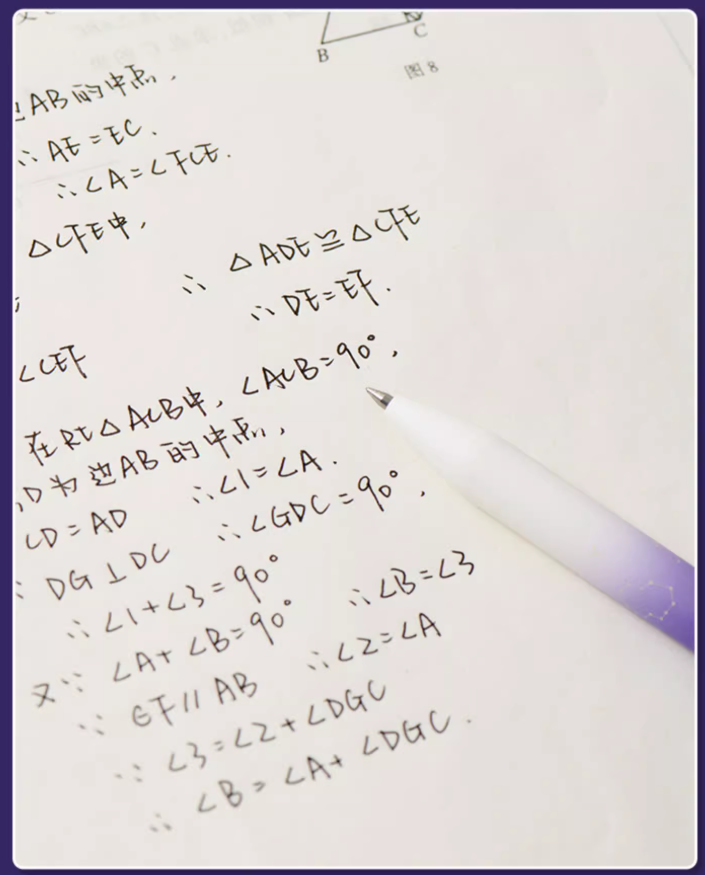 B
C
图8
边AB的中点.
∴ AE=EC.
∴∠A=∠FCE.
△CFE中,
∴ △ADE≌△CFE
∴ DE=EF.
∠CEF
在Rt△ACB中, ∠ACB=90°,
D为边AB的中点,
CD=AD ∴∠1=∠A.
∵ DG⊥DC ∴∠GDC=90°,
∴ ∠1+∠3=90°
又∵ ∠A+∠B=90° ∴∠B=∠3
∵ GF∥AB ∴∠2=∠A
∵ ∠3=∠2+∠DGC
∴ ∠B=∠A+∠DGC.